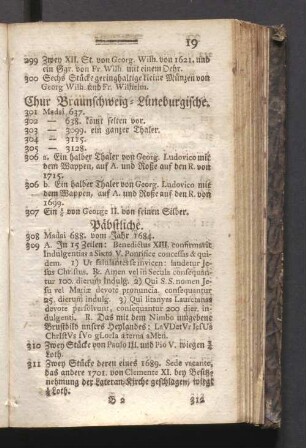 19
299 Zwey XII. St. von Georg. Wilh. von 1621. und
ein Ggr. von Fr. Wilh. mit einem Oehr.
300 Sechs Stücke geringhaltige kleine Münzen von
Georg Wilh. und Fr. Wilhelm.
Chur Braunschweig-Lüneburgische.
301 Madai 637.
302 — 638. kömt selten vor.
303 — 3099. ein ganzer Thaler.
304 — 3125.
305 — 3128.
306 a. Ein halber Thaler von Georg. Ludovico mit
dem Wappen, auf A. und Roße auf den R. von
1715.
306 b. Ein halber Thaler von Georg. Ludovico mit
dem Wappen, auf A. und Roße auf den R. von
1699.
307 Ein von George II. von feinem Silber.
Päbstliche.
308 Madai 688. vom Jahr 1684.
309 A. In 15 Zeilen: Benedictus XIII. confirmavit
Indulgentias a Sixto V. Pontifice concessas & qui-
dem. 1) Ut salutantes se invicem: laudetur Je-
sus Christus, Rr. Amen vel in Secula consequan-
tur 100. dierum Indulg. 2) Qui S.S. nomen Je-
su vel Mariæ devote pronuncia. consequantur
25. dierum indulg. 3) Qui litanyas Lauretanas
devote persolvent, consequantur 200 dier. in-
dulgenti. R. Das mit dem Nimbo umgebene
Brustbild unsers Heylandes: LaVDetVr JesUs
ChrIstVs sVo gLorIa æterna aMen.
310 Zwey Stücke von Paulo III. und Pio V. wiegen
Loth.
311 Zwey Stücke deren eines 1689. Sede vacante,
das andere 1701. von Clemente XI. bey Besitz-
nehmung der Lateran. Kirche geschlagen, wiegt
Loth.
B 2 312